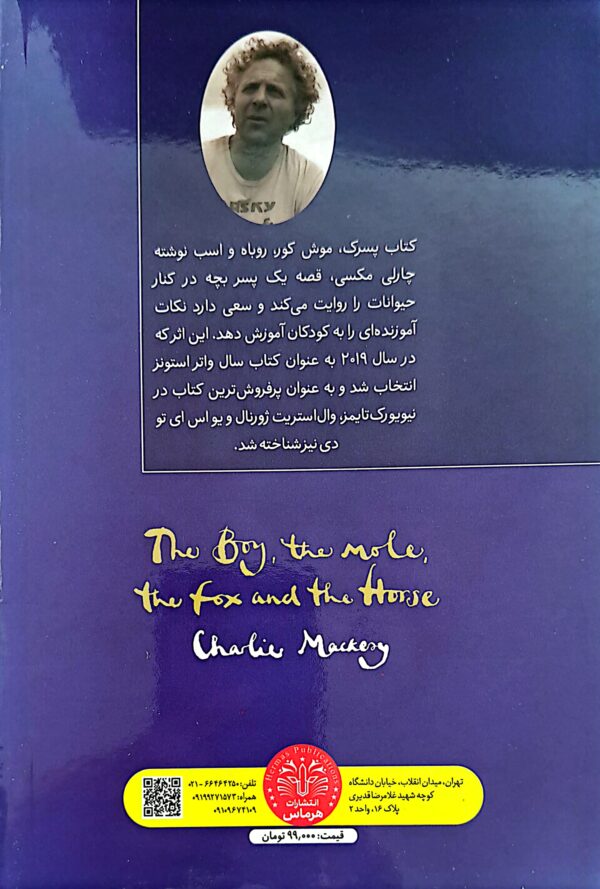 کتاب پسرک، موش کور، روباه و اسب نوشته
چارلی مکسی، قصه یک پسر بچه در کنار
حیوانات را روایت می‌کند و سعی دارد نکات
آموزنده‌ای را به کودکان آموزش دهد. این اثر که
در سال ۲۰۱۹ به عنوان کتاب سال واتر استونز
انتخاب شد و به عنوان پرفروش‌ترین کتاب در
نیویورک تایمز، وال‌استریت ژورنال و یو اس ای تو
دی نیز شناخته شد.
The Boy, the mole,
the fox and the Horse
Charlie Mackesy
تهران، میدان انقلاب، خیابان دانشگاه
کوچه شهید غلامرضا قدیری
پلاک ۱۶، واحد ۲
Hermas Publications
انتشارات
هرماس
تلفن: ۶۶۴۶۴۲۵۰ - ۰۲۱
همراه: ۰۹۱۹۹۲۷۱۵۷۳
۰۹۱۰۹۶۷۴۱۰۹
قیمت: ۹۹,۰۰۰ تومان